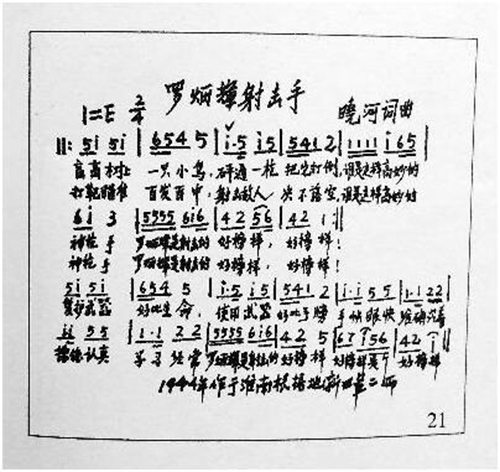 罗炳辉射击手
1=E 2/4 晓河词曲
‖: 5i 5i | 654 5 | i·5 i5 | 541 2 | 1111 i65 |
高高树上 一只小鸟, 砰通一枪 把它打倒, 谁是这样高妙的
打靶瞄准 百发百中, 射击敌人 决不落空, 谁是这样高妙的
6i 3 | 5555 6i6 | 42 56 | 42 1 :‖
神枪手 罗炳辉是射击的 好榜样, 好榜样!
神枪手 罗炳辉是射击的 好榜样, 好榜样!
5i 5i | 654 5 | i·5 i5 | 541 2 | i·i 55 | 1·1 22 |
爱护武器 好比生命, 使用武器 好比手膀 手快眼快 准确沉着
ii 55 | 1·1 22 | 5555 6i6 | 42 5 | 67 i56 | 42 i ‖
认真 学习经常 罗炳辉是射击的 好榜样 好榜样 好榜样
1944年作于淮南根据地新四军二师
21